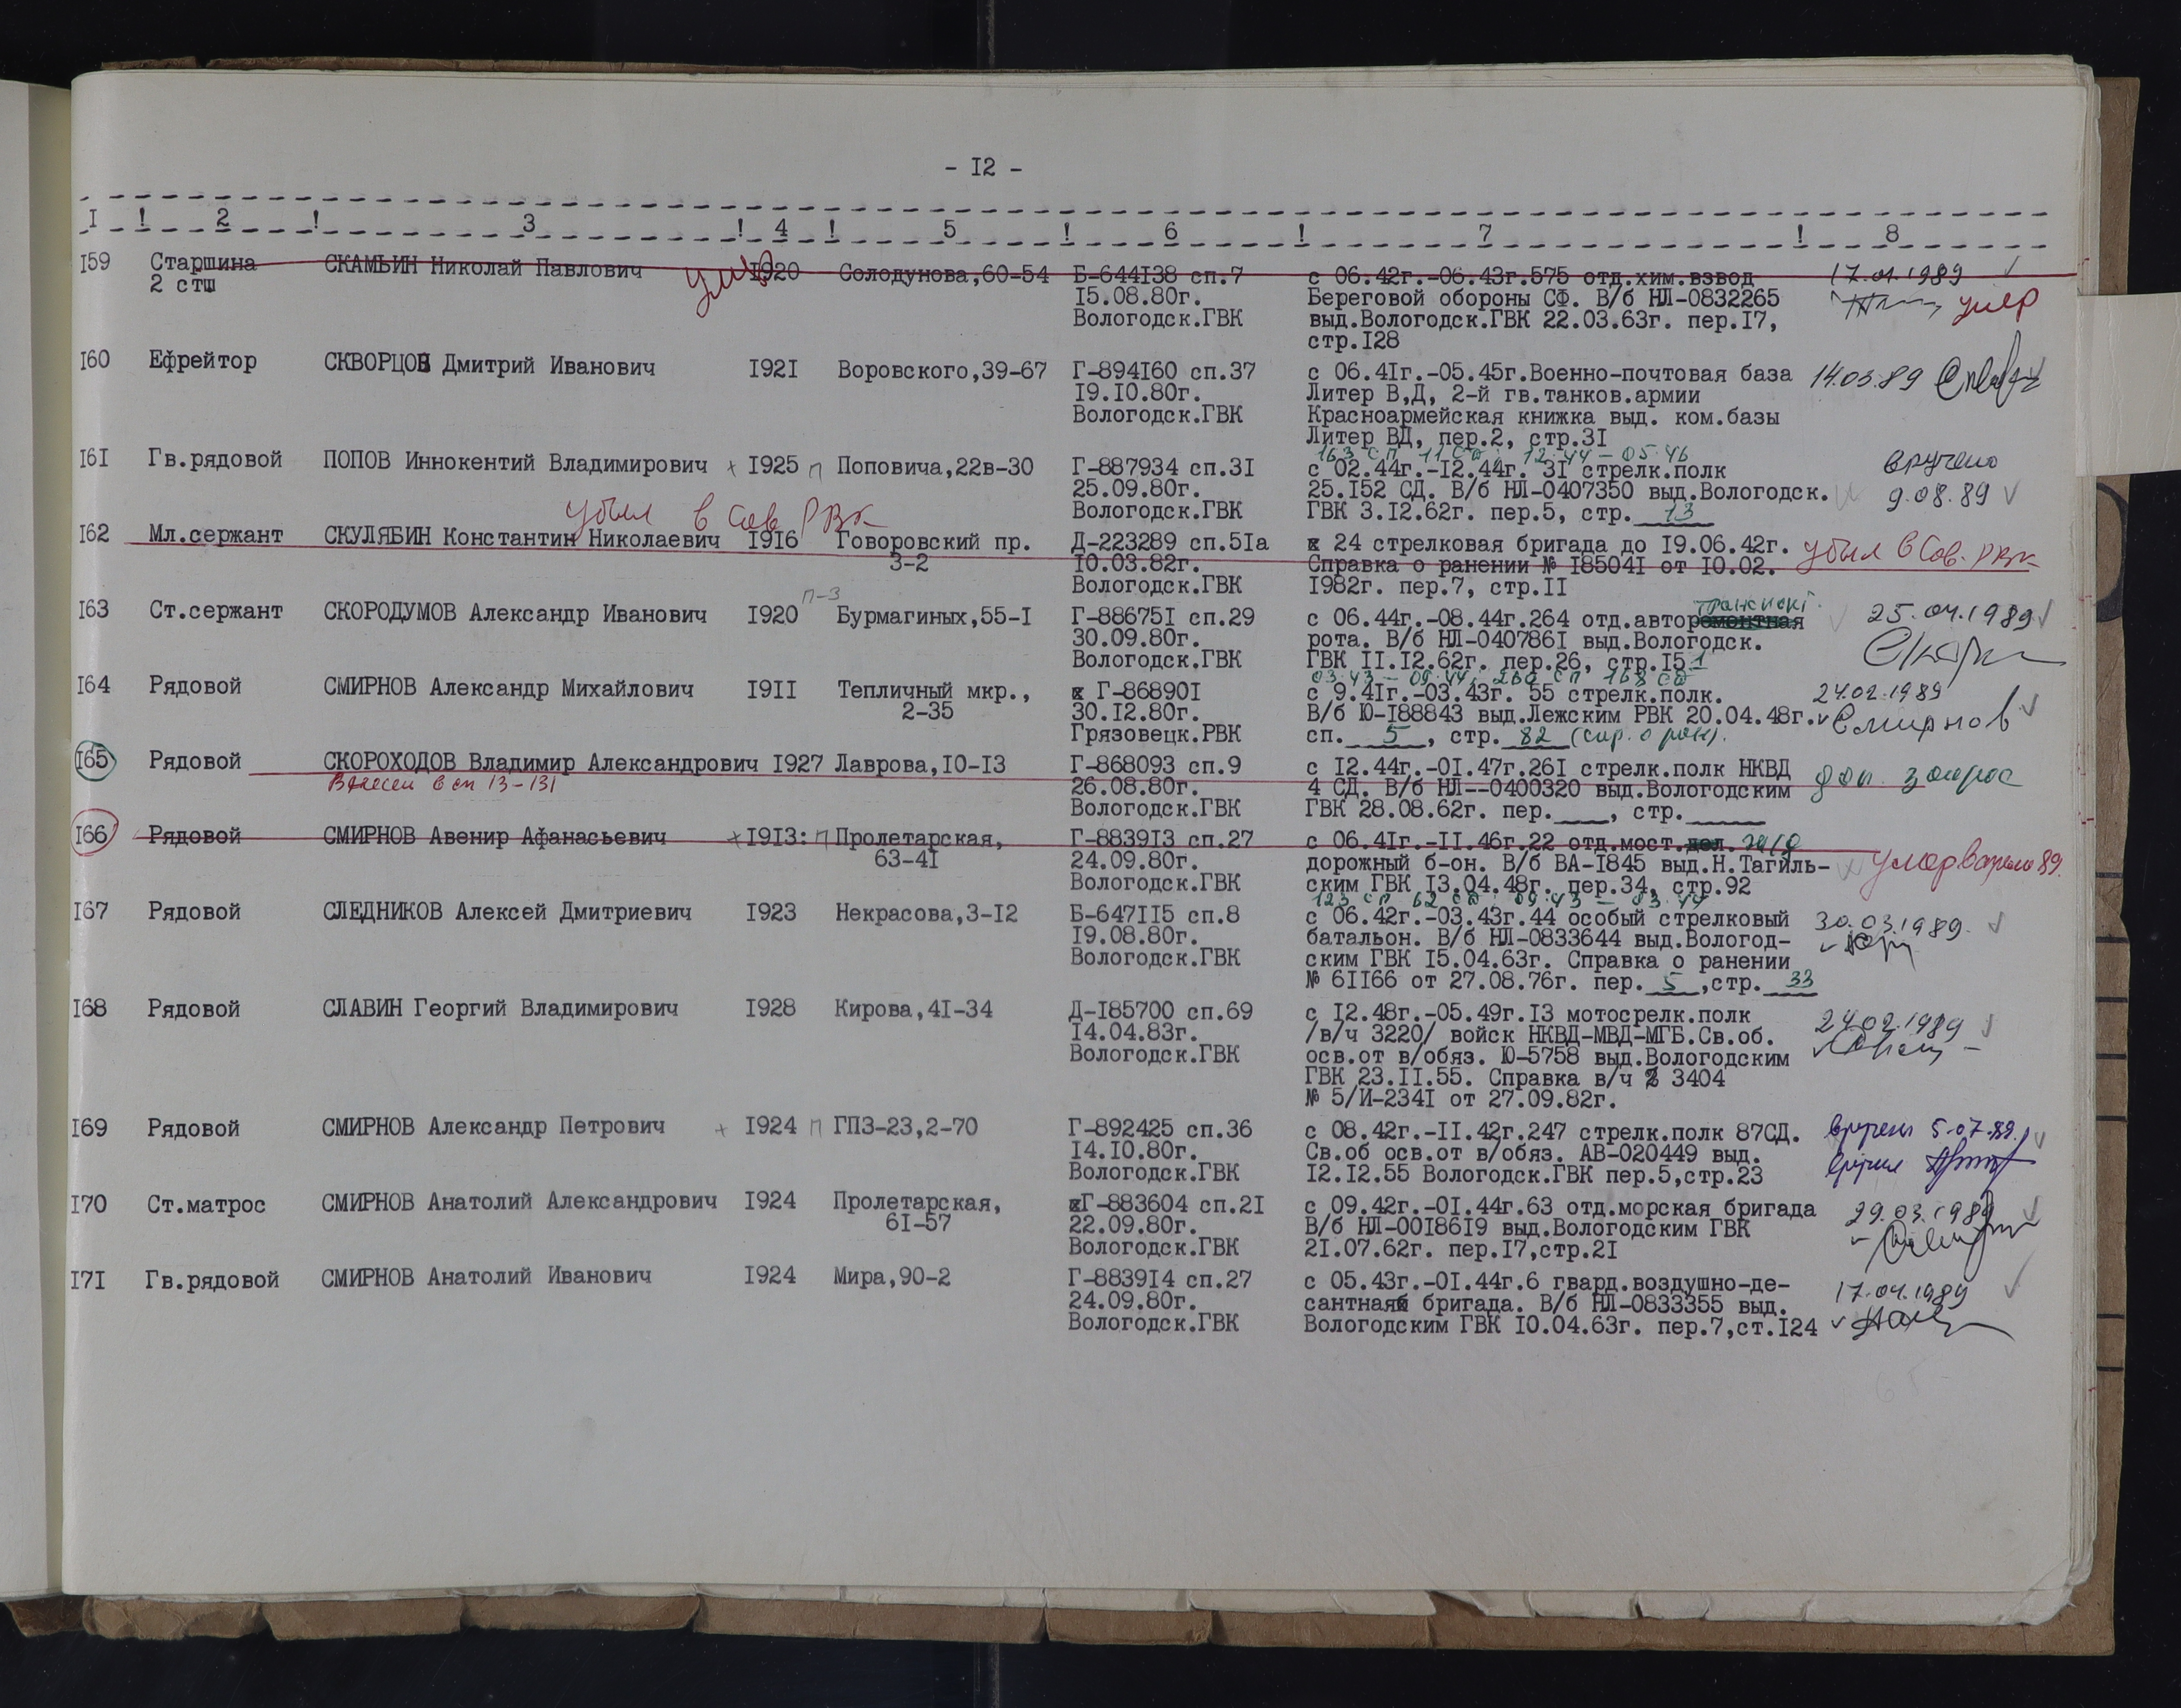 - I2 -
I ! 2 ! 3 ! 4 ! 5 ! 6 ! 7 ! 8
I59 Старшина СКАМЬИН Николай Павлович I920 Солодунова,60-54 Б-644I38 сп.7 с 06.42г.-06.43г.575 отд.хим.взвод 17.01.1989
2 стш I5.08.80г. Береговой обороны СФ. В/б НЛ-0832265 умер
Вологодск.ГВК выд.Вологодск.ГВК 22.03.63г. пер.I7,
стр.I28
I60 Ефрейтор СКВОРЦОВ Дмитрий Иванович I92I Воровского,39-67 Г-894I60 сп.37 с 06.4Iг.-05.45г.Военно-почтовая база 14.03.89
I9.I0.80г. Литер В,Д, 2-й гв.танков.армии
Вологодск.ГВК Красноармейская книжка выд. ком.базы
Литер ВД, пер.2, стр.3I
163 сп 11 сд 12.44 - 05.46
I6I Гв.рядовой ПОПОВ Иннокентий Владимирович + I925 п Поповича,22в-30 Г-887934 сп.3I с 02.44г.-I2.44г. 3I стрелк.полк вручено
25.09.80г. 25.I52 СД. В/б НЛ-0407350 выд.Вологодск. 9.08.89
Вологодск.ГВК ГВК 3.I2.62г. пер.5, стр. 13
убыл в Сов РВК
I62 Мл.сержант СКУЛЯБИН Константин Николаевич I9I6 Говоровский пр. Д-223289 сп.5Iа х 24 стрелковая бригада до I9.06.42г. убыл в Сов. РВК
3-2 I0.03.82г. Справка о ранении № I8504I от I0.02.
Вологодск.ГВК I982г. пер.7, стр.II
п-3
I63 Ст.сержант СКОРОДУМОВ Александр Иванович I920 Бурмагиных,55-I Г-88675I сп.29 с 06.44г.-08.44г.264 отд.авторемонтная 25.04.1989
30.09.80г. рота. В/б НЛ-040786I выд.Вологодск.
Вологодск.ГВК ГВК II.I2.62г. пер.26, стр.I51
03.43 - 09.44; 260 сп 168 сд
I64 Рядовой СМИРНОВ Александр Михайлович I9II Тепличный мкр., х Г-86890I с 9.4Iг.-03.43г. 55 стрелк.полк. 24.02.1989
2-35 30.I2.80г. В/б Ю-I88843 выд.Лежским РВК 20.04.48г. Смирнов
Грязовецк.РВК сп. 5 , стр. 82 (спр. о ран).
I65 Рядовой СКОРОХОДОВ Владимир Александрович I927 Лаврова,I0-I3 Г-868093 сп.9 с I2.44г.-0I.47г.26I стрелк.полк НКВД доп. запрос
Внесен в сп 13-131 26.08.80г. 4 СД. В/б НЛ--0400320 выд.Вологодским
Вологодск.ГВК ГВК 28.08.62г. пер.___, стр.____
I66 Рядовой СМИРНОВ Авенир Афанасьевич + I9I3: п Пролетарская, Г-8839I3 сп.27 с 06.4Iг.-II.46г.22 отд.мост.
63-4I 24.09.80г. дорожный б-он. В/б ВА-I845 выд.Н.Тагиль- умер в апреле 89.
Вологодск.ГВК ским ГВК I3.04.48г. пер.34, стр.92
123 сп 62 сд 09.43 - 03.44
I67 Рядовой СЛЕДНИКОВ Алексей Дмитриевич I923 Некрасова,3-I2 Б-647II5 сп.8 с 06.42г.-03.43г.44 особый стрелковый 30.03.1989
I9.08.80г. батальон. В/б НЛ-0833644 выд.Вологод-
Вологодск.ГВК ским ГВК I5.04.63г. Справка о ранении
№ 6II66 от 27.08.76г. пер. 5 ,стр. 33
I68 Рядовой СЛАВИН Георгий Владимирович I928 Кирова,4I-34 Д-I85700 сп.69 с I2.48г.-05.49г.I3 мотосрелк.полк 24.02.1989
I4.04.83г. /в/ч 3220/ войск НКВД-МВД-МГБ.Св.об.
Вологодск.ГВК осв.от в/обяз. Ю-5758 выд.Вологодским
ГВК 23.II.55. Справка в/ч 3404
№ 5/И-234I от 27.09.82г.
I69 Рядовой СМИРНОВ Александр Петрович + I924 п ГПЗ-23,2-70 Г-892425 сп.36 с 08.42г.-II.42г.247 стрелк.полк 87СД. вручен 5.07.89.
I4.I0.80г. Св.об осв.от в/обяз. АВ-020449 выд. вручил
Вологодск.ГВК I2.I2.55 Вологодск.ГВК пер.5,стр.23
I70 Ст.матрос СМИРНОВ Анатолий Александрович I924 Пролетарская, хГ-883604 сп.2I с 09.42г.-0I.44г.63 отд.морская бригада 29.03.1989
6I-57 22.09.80г. В/б НЛ-00I86I9 выд.Вологодским ГВК
Вологодск.ГВК 2I.07.62г. пер.I7,стр.2I
I7I Гв.рядовой СМИРНОВ Анатолий Иванович I924 Мира,90-2 Г-8839I4 сп.27 с 05.43г.-0I.44г.6 гвард.воздушно-де- 17.04.1989
24.09.80г. сантная бригада. В/б НЛ-0833355 выд.
Вологодск.ГВК Вологодским ГВК I0.04.63г. пер.7,ст.I24